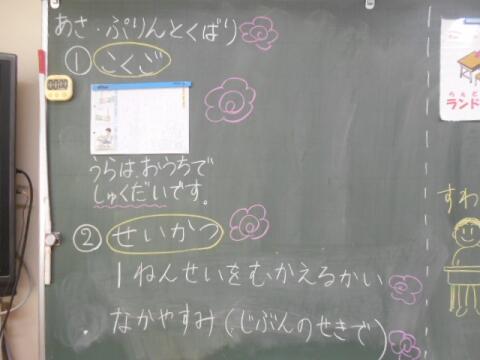 あさ・ぷりんとくばり
① こくご
うらは、おうちで
しゅくだいです。
② せいかつ
1ねんせいをむかえるかい
なかやすみ(じぶんのせきで)
ランド
すわ